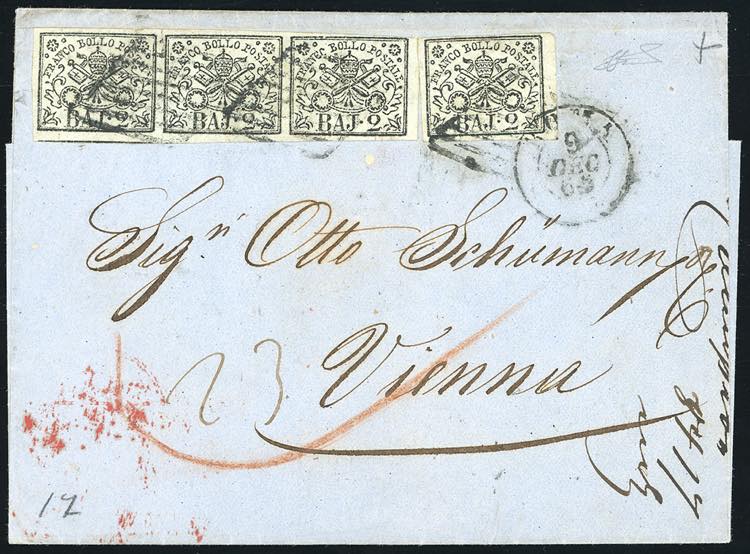 FRANCO BOLLO POSTALE
BAJ. 2
FRANCO BOLLO POSTALE
BAJ. 2
FRANCO BOLLO POSTALE
BAJ. 2
FRANCO BOLLO POSTALE
BAJ. 2
9
DEC
63
Sigri Otto Schümann
Vienna
23
12